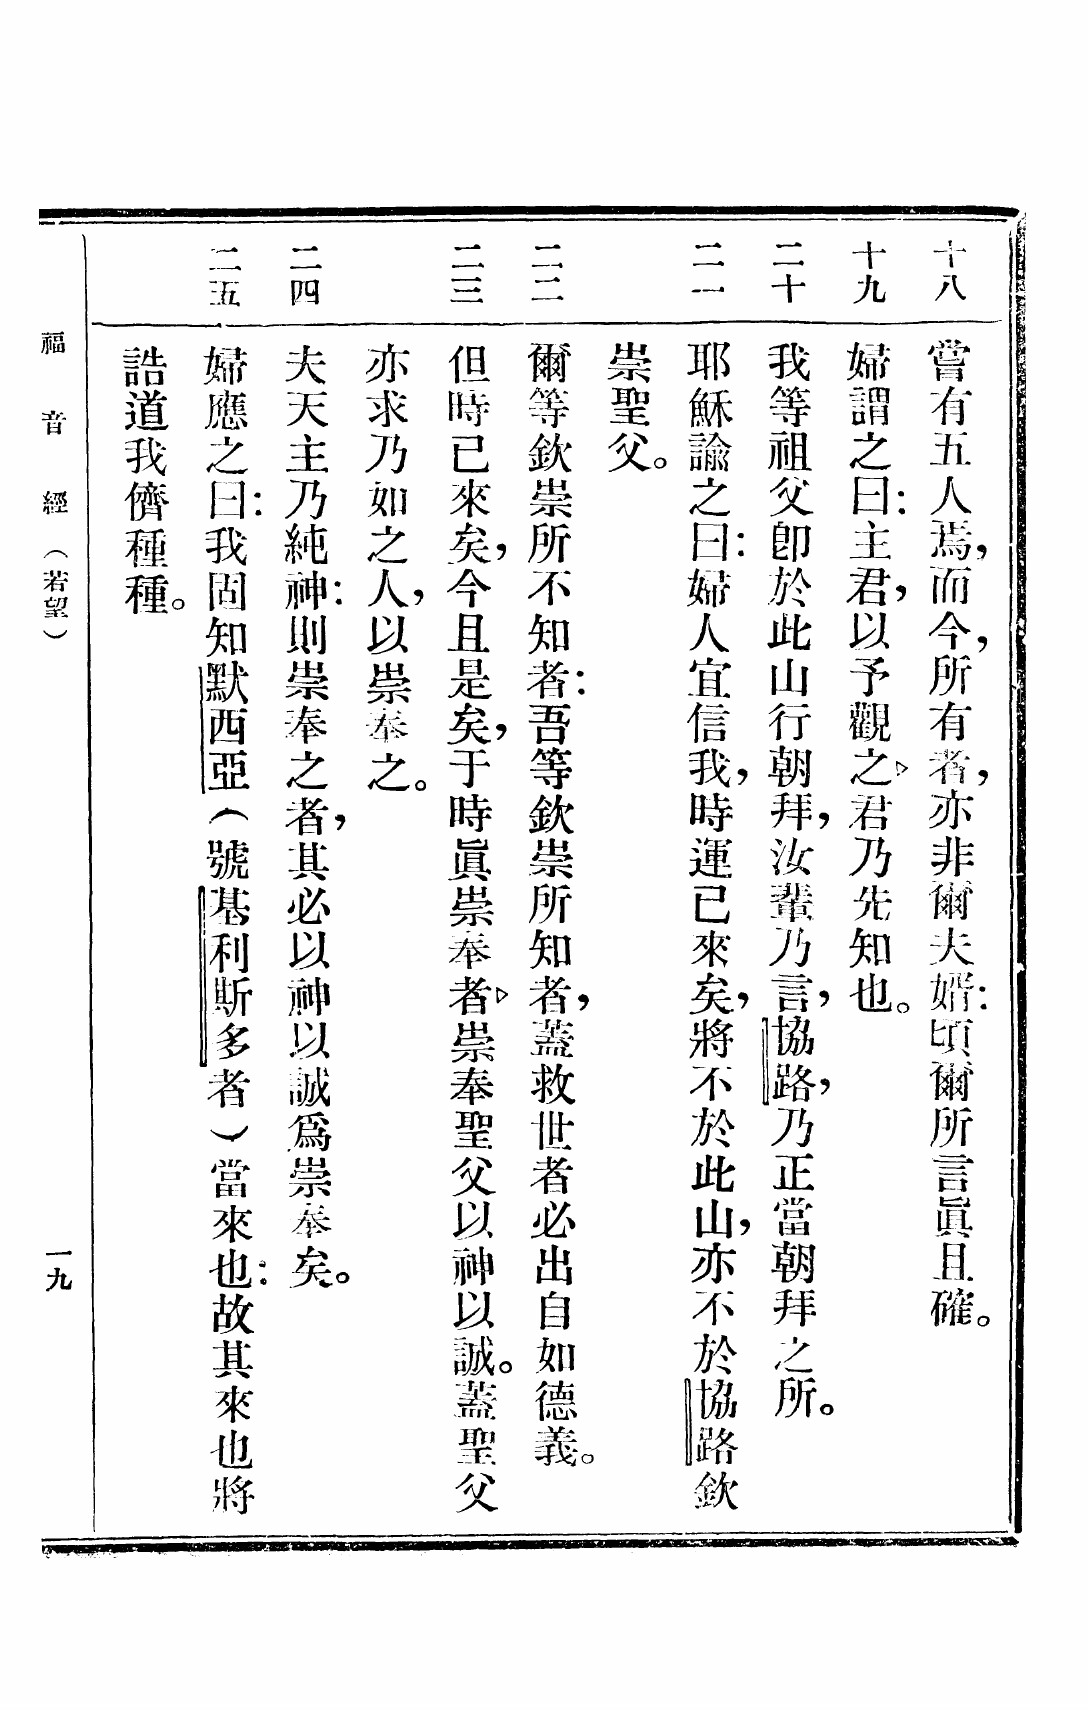 十八
嘗有五人焉，而今，所有者，亦非爾夫婿：頃爾所言眞且確。
十九
婦謂之曰：主君，以予觀之▷君乃先知也。
二十
我等祖父卽於此山行朝拜，汝輩乃言，協路，乃正當朝拜之所。
二一
耶穌諭之曰：婦人宜信我，時運已來矣，將不於此山，亦不於協路欽
崇聖父。
二二
爾等欽崇所不知者：吾等欽崇所知者，蓋救世者必出自如德義。
二三
但時已來矣，今且是矣，于時眞崇奉者▷崇奉聖父以神以誠。蓋聖父
亦求乃如之人，以崇奉之。
二四
夫天主乃純神：則崇奉之者，其必以神以誠爲崇奉矣。
二五
婦應之曰：我固知默西亞（號基利斯多者）當來也：故其來也將
誥道我儕種種。
福音經（若望）
一九